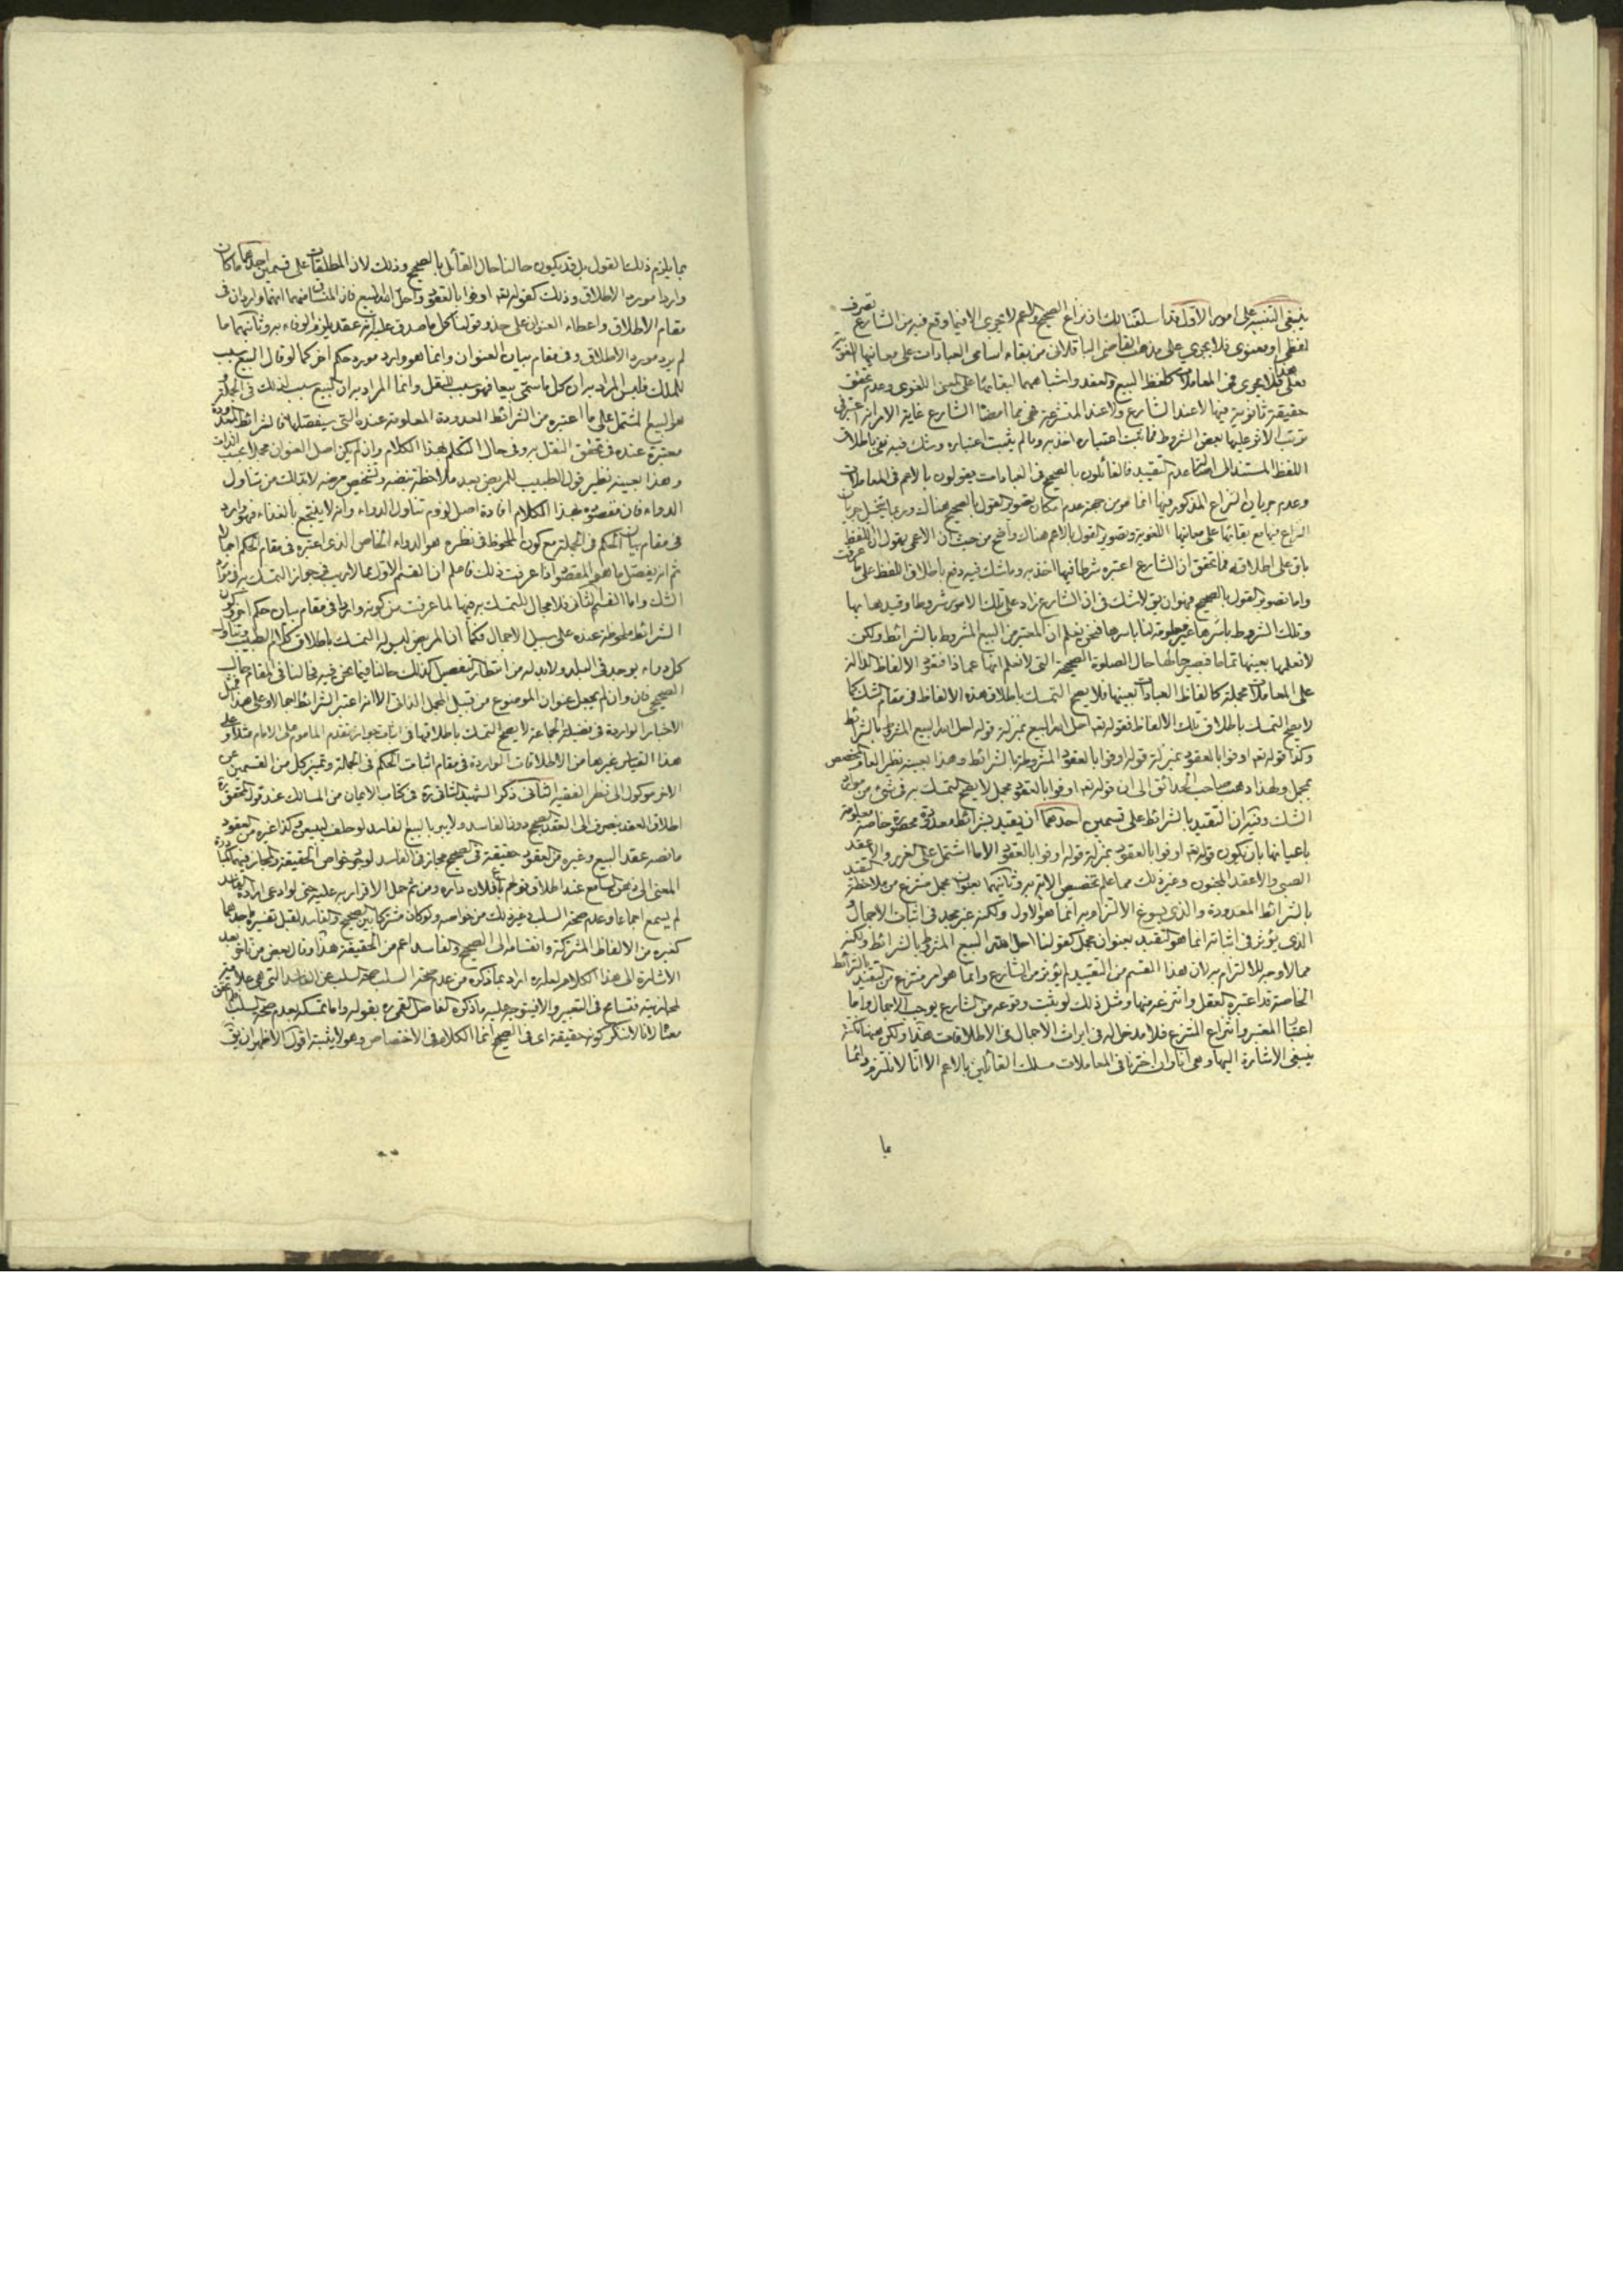 ينبغي التنبيه على امور الاول قد اسلفنا لك ان نزاع الصحيح والاعم لا يجري الا فيما وقع فيه من الشارع تصرف
لفظي او معنوي فلا يجري على مذهب القاضي الباقلاني من بقاء اسامي العبادات على معانيها اللغوية
فعلى هذا فلا يجري في المعاملات كلفظ البيع والعقد واشباههما لبقائها على المعنى اللغوي وعدم تحقق
حقيقة ثانوية فيها لا عند الشارع ولا عند المتشرعة فهي مما امضا الشارع غاية الامر انه اعتبر في
ترتب الاثر عليها بعض الشروط فما ثبت اعتباره اخذ به وما لم يثبت اعتباره وشك فيه نفي باطلاق
اللفظ المستند الى اصالة عدم التقييد فالقائلون بالصحيح في العبادات يقولون بالاعم في المعاملات
وعدم جريان النزاع المذكور فيها انما هو من جهة عدم امكان تصوير القول بالصحيح هناك وربما يتخيل جريان
النزاع فيها مع بقائها على معانيها اللغوية وتصوير القول بالاعم هناك واضح من حيث ان الاعمي يقول ان اللفظ
باق على اطلاقه فما تحقق ان الشارع اعتبره شرطا فيها اخذ به وما شك فيه دفع باطلاق اللفظ على ما عرفت
واما تصوير القول بالصحيح فهو ان يق لا شك في ان الشارع زاد على تلك الامور شروطا وقيدها بها
وتلك الشروط باسرها غير معلومة لنا باسرها فنحن نعلم ان المعتبر من البيع المشروط بالشرائط ولكن
لا نعلمها بعينها تماما فيصير حالها حال الصلوة الصحيحة التي لا نعلم انها عما ذا فتقع الالفاظ الدالة
على المعاملات مجملة كالفاظ العبادات بعينها فلا يصح التمسك باطلاق هذه الالفاظ في مقام الشك كما
لا يصح التمسك باطلاق تلك الالفاظ فقوله تعه احل الله البيع بمنزلة قوله احل الله البيع المشروط بالشرائط
وكذا قوله تعه اوفوا بالعقود بمنزلة قوله اوفوا بالعقود المشروطة بالشرائط وهذا بعينه نظير العام المخصص
بمجمل ولهذا ذهب صاحب الحدائق الى ان قوله تعه اوفوا بالعقود مجمل لا يصح التمسك به في شئ من موارد
الشك وفيه ان التقييد بالشرائط على قسمين احدهما ان يقيد بشرائط معدودة محصورة خاصة معلومة
باعيانها بان يكون قوله تعه اوفوا بالعقود بمنزلة قوله اوفوا بالعقود الا ما اشتمل على الغرر والا عقد
الصبي والا عقد المجنون وغير ذلك مما علم تخصيص الاية به وثانيهما بعنوان مجمل منتزع من ملاحظة التقييد
بالشرائط المعدودة والذي يسوغ الالتزام به انما هو الاول ولكنه غير مجد في اثبات الاجمال و
الذي يؤثر في اثباته انما هو التقييد بعنوان مجمل كقولنا احل الله البيع المشروط بالشرائط ولكنه
مما لا وجه للالتزام به لان هذا القسم من التقييد لم يؤثر من الشارع وانما هو امر منتزع من التقييد بالشرائط
الخاصة قد اعتبره العقل وانتزعه منها ومثل ذلك لو ثبت وقوعه من الشارع يوجب الاجمال واما
اعتبار المعتبر وانتزاع المنتزع فلا مدخل له في ايراث الاجمال في الاطلاقات هذا ولكن هيهنا نكتة
ينبغي الاشارة اليها وهي انا وان اخترنا في المعاملات مسلك القائلين بالاعم الا انا لا نلتزم دائما
بما
بما يلزم ذلك القول بل قد يكون حالنا حال القائل بالصحيح وذلك لان المطلقات على قسمين احدهما ما كان
واردا مورد الاطلاق وذلك كقوله تعه اوفوا بالعقود واحل الله البيع فان المنساق منهما انهما واردان في
مقام الاطلاق واعطاء العنوان على حذو قولنا كل ما صدق عليه انه عقد يلزم الوفاء به وثانيهما ما
لم يرد مورد الاطلاق وفي مقام بيان العنوان وانما هو وارد مورد حكم اخر كما لو قال البيع سبب
للملك فليس المراد به ان كل ما سمي بيعا فهو سبب للنقل وانما المراد به ان البيع سبب لذلك في الجملة و
هو البيع المشتمل على ما اعتبره من الشرائط المعدودة المعلومة عنده التي سيفصلها فالشرائط المعدودة
معتبرة عنده في تحقق النقل به وفي حال التكلم بهذا الكلام وان لم يكن اصل العنوان مجملا بحسب الذات
وهذا بعينه نظير قول الطبيب للمريض بعد ملاحظة نبضه وتشخيص مرضه لا بد لك من تناول
الدواء فان مقصوده بهذا الكلام افادة اصل لزوم تناول الدواء وانه لا ينتجع بالغذاء فهو وارد
في مقام بيان الحكم في الجملة مع كون الملحوظ في نظره هو الدواء الخاص الذي اعتبره في مقام الحكم اجمالا
ثم انه يفصل ما هو المقصود اذا عرفت ذلك فاعلم ان القسم الاول مما لا ريب في جواز التمسك به في موارد
الشك واما القسم الثاني فلا مجال للتمسك به فيها لما عرفت من كونه واردا في مقام بيان حكم اخر وكون
الشرائط ملحوظة عنده على سبيل الاجمال فكما ان المريض ليس له التمسك باطلاق كلام الطبيب في تناول
كل دواء يوجد في البلد ولا بد له من انتظار التفصيل كذلك حالنا فيما نحن فيه فحالنا في المقام حال
الصحيحي فانه وان لم يجعل عنوان الموضوع من قبيل المجمل الذاتي الا انه اعتبر الشرائط اجمالا وعلى هذا فمثل
الاخبار الواردة في فضيلة الجماعة لا يصح التمسك باطلاقها في اثبات جواز تقدم الماموم على الامام مثلا وعلى
هذا القياس غيرها من الاطلاقات الواردة في مقام اثبات الحكم في الجملة وتميز كل من القسمين عن
الاخر موكول الى نظر الفقيه الثاني ذكر الشهيد الثاني ره في كتاب الايمان من المسالك عند قول المحقق ره
اطلاق العقد ينصرف الى العقد الصحيح دون الفاسد ولا يبر بالبيع الفاسد لو حلف ليبيعن وكذا غيره من العقود
ما نصه عقد البيع وغيره من العقود حقيقة في الصحيح مجاز في الفاسد لوجود خواص الحقيقة والمجاز فيهما كمبادرة
المعنى الى ذهن السامع عند اطلاق قولهم باع فلان داره ومن ثم حمل الاقرار به عليه حتى لو ادعى ارادة الفاسد
لم يسمع اجماعا وعدم صحة السلب وغير ذلك من خواصه ولو كان مشتركا بين الصحيح والفاسد لقبل تفسيره باحدهما
كغيره من الالفاظ المشتركة وانقسامه الى الصحيح والفاسد اعم من الحقيقة هذا وقال بعض من تاخر بعد
الاشارة الى هذا الكلام لعله ره اراد بما ذكره من عدم صحة السلب صحة السلب عن الفاسد التي هي علامة
لمجازيته فتسامح في التعبير والا فيتوجه عليه ما ذكره الفاضل القمي ره بقوله واما تمسكه بعدم صحة السلب فيما نحن
معناه لانا لا ننكر كونه حقيقة اي في الصحيح انما الكلام في الاختصاص وهو لا يثبته اقول الاظهر ان يق